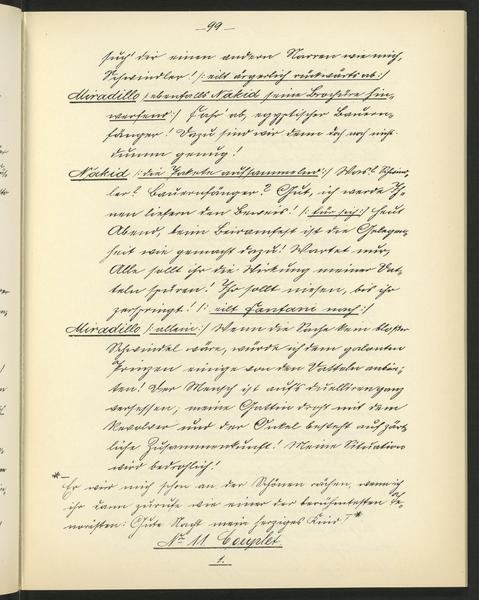 – 99 –
such' dir einen andern Narren wie mich,
Schwindler! /: eilt ärgerlich rückwärts ab :/
Miradillo /: ebenfalls Nakid seine Brochüre hin-
werfend :/ Fahr' ab, egyptischer Bauern-
fänger! Dazu sind wir denn doch noch nicht
dumm genug!
Nakid /: die Pakete aufsammelnd :/ Was? Schwind-
ler? Bauernfänger? Gut, ich werde Ih-
nen liefern den Beweis! /: für sich :/ Heut
Abend, beim Beiramfest ist die Gelegen-
heit wie gemacht dazu! Wartet nur,
Alle sollt ihr die Wirkung meiner Dat-
teln spüren! Ihr sollt niesen, bis ihr
zerspringt! /: eilt Fantani nach :/
Miradillo /: allein :/ Wenn die Sache kein bloßer
Schwindel wäre, würde ich dem galanten
Prinzen einige von den Datteln anbie-
ten! Der Mensch ist auf's duelliren ganz
versessen, meine Gattin droht mit dem
Revolver und der Onkel besteht auf zärt-
liche Zusammenkunft! Meine Situation
wird bedrohlich!
*– Er wird mich schon an der Schönen rächen, wenn ich
ihr dann zurufe wie einer der berühmtesten Te-
noristen: Gute Nacht mein herziges Kind! –*
No 11 Couplet.
1.